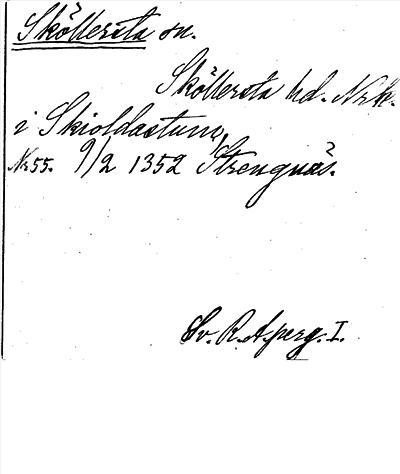 Sköllersta sn.
Sköllersta hd. Nrk.
i Skioldastum,
Nr 55. 9/2 1352 Strengnäs.
Sv. R. A. perg. I.